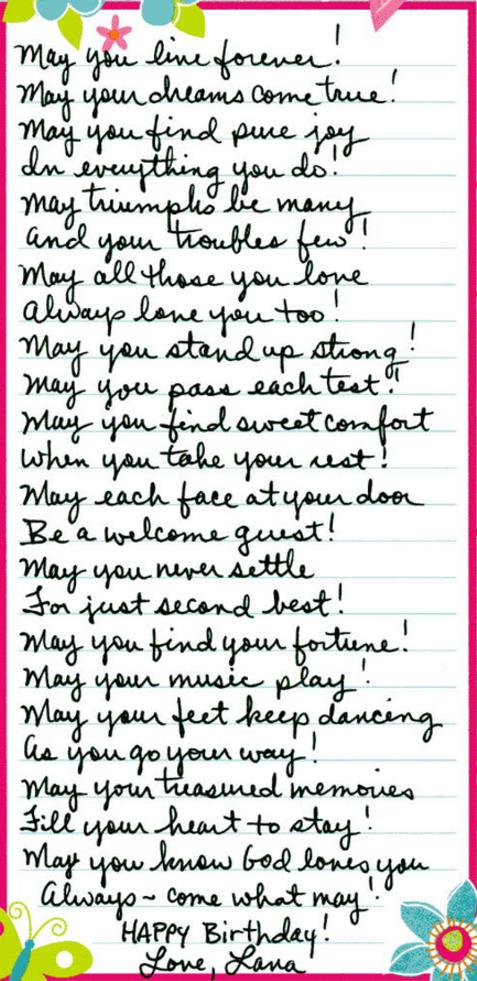 May you live forever!
May your dreams come true!
May you find pure joy
In everything you do!
May triumphs be many
And your troubles few!
May all those you love
Always love you too!
May you stand up strong!
May you pass each test!
May you find sweet comfort
When you take your rest!
May each face at your door
Be a welcome guest!
May you never settle
For just second best!
May you find your fortune!
May your music play!
May your feet keep dancing
As you go your way!
May your treasured memories
Fill your heart to stay!
May you know God loves you
Always ~ come what may!
HAPPY Birthday!
Love, Lana